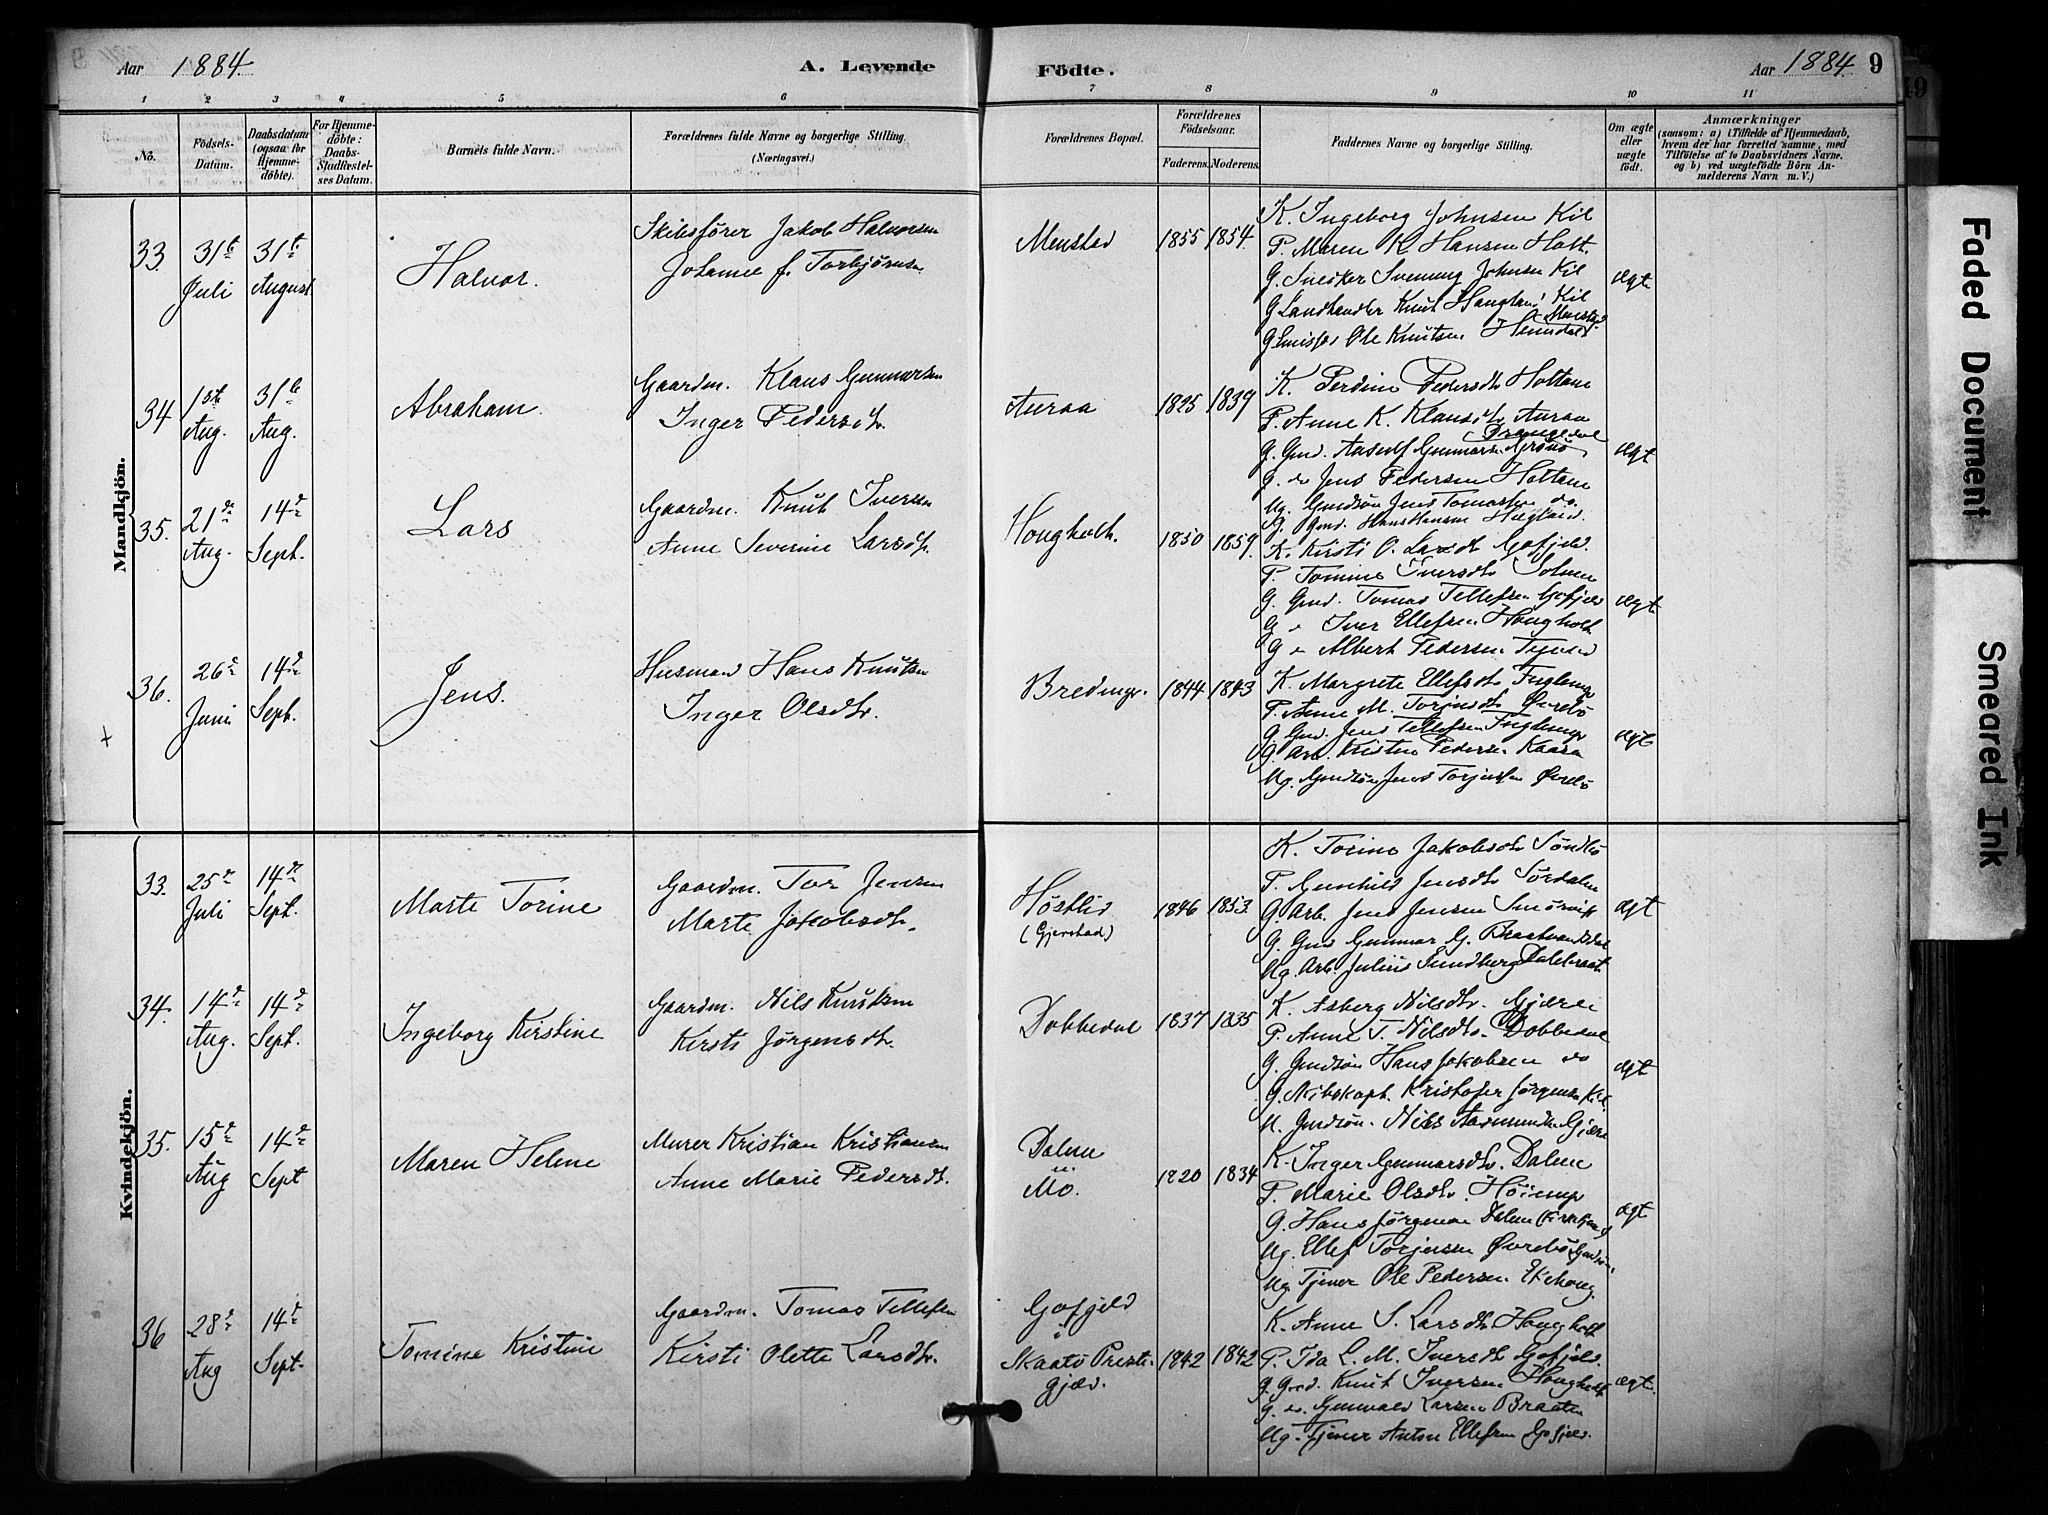 Aar 1884. A. Levende Födte. Aar 1884. 9
1 2 3 4 5 6 7 8 9 10 11
No.
Födsels-Datum.
Daabsdatum (ogsaa for Hjemme-döbte).
For Hjemme-döbte: Daabs-Stadfæstel-ses Datum.
Barnets fulde Navn.
Forældrenes fulde Navne og borgerlige Stilling.
(Næringsvei.)
Forældrenes Bopæl.
Forældrenes Födselsaar.
Faderens. Moderens.
Faddernes Navne og borgerlige Stilling.
Om ægte eller uægte födt.
Anmærkninger
(saasom: a) i Tilfælde af Hjemmedaab,
hvem der har forrettet samme, med
Tilföielse af to Daabsvidners Navne.
og b) ved uægtefödte Börn An-
melderens Navn m. V.)
Mandkjön.
33. 31te Juli 31te August Halvor. Skibsfører Jakob Halvorsen
Johanne f. Torbjørnsen
Menstad 1855 1854.
K. Ingeborg Johnsen Kil
P. Maren K. Hansen Holt.
G. Snedker Svenung Johnsen Kil
G Landhandler Knut Haugland Kil
G Ole Knutsen Heimdal Menstad
ægt
34 1ste Aug. 31te Aug. Abraham. Gaardm. Klaus Gunnarsen
Inger Pedersdtr.
Auraa 1825 1839
K. Perdine Pedersdtr Holtane
P. Anne K. Klausdtr Auraa
G. Gmd. Aasulf Gunnarsen Drangedal
G. do Jens Pedersen Holtane
Ug. Gmdsøn Jens Tomassen do.
G. Gmd. Hans Hansen
ægt
35. 21de Aug. 14de Sept. Lars Gaardm. Knut Iversen
Anne Severine Larsdtr.
Hougholt. 1850 1859.
K. Kirsti O. Larsdtr Gofjeld.
P. Tomine Iversdtr
G. Gmd. Tomas Tellefsen Gofjeld
G " Iver Ellefsen Hougholt
G " Albert Pedersen
ægt
36. 26de Juni 14de Sept. Jens. Husmand Hans Knutsen
Inger Olsdtr.
1844 1843
K. Margrete Ellefsdtr
P. Anne M. Torjusdtr Øvrebø
G. Gmd. Jens Tellefsen
G. Arb. Kristen Pedersen Kaasa
Ug. Gmdsøn Jens Torjussen Øvrebø
ægt
+
Kvindekjön.
33. 25de Juli 14de Sept. Marte Torine Gaardm. Tor Jensen
Marte Jakobsdtr.
Høstlid
(Gjerstad)
1846 1853.
K. Torine Jakobsdtr Søndbø
P. Gunhild Jensdtr Sørdalen
G. Arb. Jens Jensen Smørvik
G. Gmd Gunnar G.
Ug. Arb. Julius Sundberg
ægt
34. 14de Aug. 14de Sept. Ingeborg Kirstine Gaardm. Nils Knutsen
Kirsti Jørgensdtr.
Dobbedal 1837 1835
K. Asberg Nilsdtr.
P. Anne T. Nilsdtr. Dobbedal
G. Gmdsøn Hans Jakobsen do
G. Skibskapt. Kristofer Jørgensen Kil.
U. Gmdsøn. Nils Aasmundsen
ægt
35. 15de Aug 14de Sept Maren Helene Murer Kristian Kristiansen
Anne Marie Pedersdtr.
Dalene
Mo.
1820 1834
K. Inger Gunnarsdtr. Dalene
P. Marie Olsdtr.
G. Hans Jørgensen Dalene
Ug. Ellef Torjussen Øvrebø Gmdsøn
Ug Tjener Ole Pedersen Ekhoug.
ægt
36 28de Aug 14de Sept. Tomine Kristine Gaardm. Tomas Tellefsen
Kirsti Olette Larsdtr.
Gofjeld
i
Skaatø Præste-
gjæld.
1842 1842
K. Anne S. Larsdtr Hougholt
P. Ida L. M. Iversdtr Gofjeld.
G. Gmd. Knut Iversen Hougholt
G. do. Gunvald Larsen Braaten
Ug. Tjener Anton Ellefsen Gofjeld.
ægt.
49
Faded Document
Smeared Ink